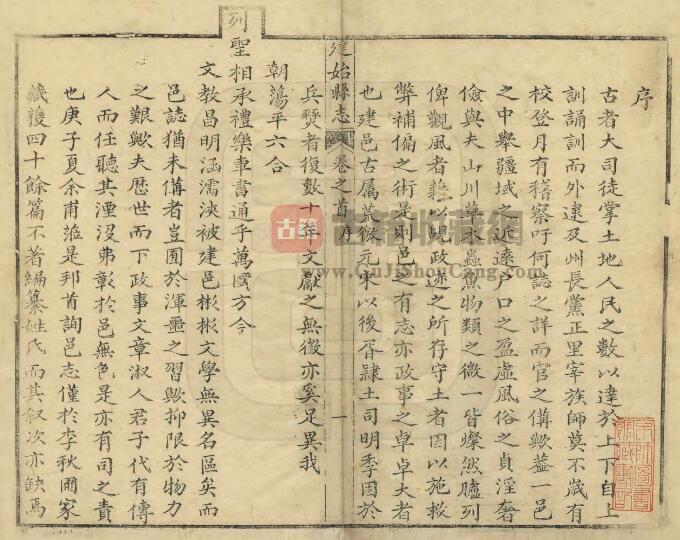 序
古者大司徒掌土地人民之數以達於上下自上
訓誦訓而外逮及州長黨正里宰族師莫不歲有
校登月有稽察吁何誌之詳而官之備歟蓋一邑
之中舉疆域之近遠户口之盈虛風俗之貞淫奢
儉與夫山川草木蟲魚物類之微一皆燦然臚列
俾觀風者藉以覘政迹之所存守土者因以施救
弊補偏之術是則邑之有志亦政事之卓卓大者
也建邑古属荒徼元宋以後胥隸土司明季困於
建始縣志
卷之首
序
一
兵燹者復數十年文獻之無徵亦奚足異我
朝蕩平六合
列聖相承禮樂車書通乎萬國方今
文教昌明涵濡浹被建邑彬彬文學無異名區矣而
邑誌猶未備者豈囿於渾噩之習歟抑限於物力
之艱歟夫歷世而下政事文章淑人君子代有傳
人而任聽其湮没弗彰於邑無色是亦有司之責
也庚子夏余甫涖是邦首詢邑志僅於李秋圃家
藏獲四十餘篇不著編纂姓氏而其叙次亦缺焉
古籍收藏網
www.GuJiShouCang.com